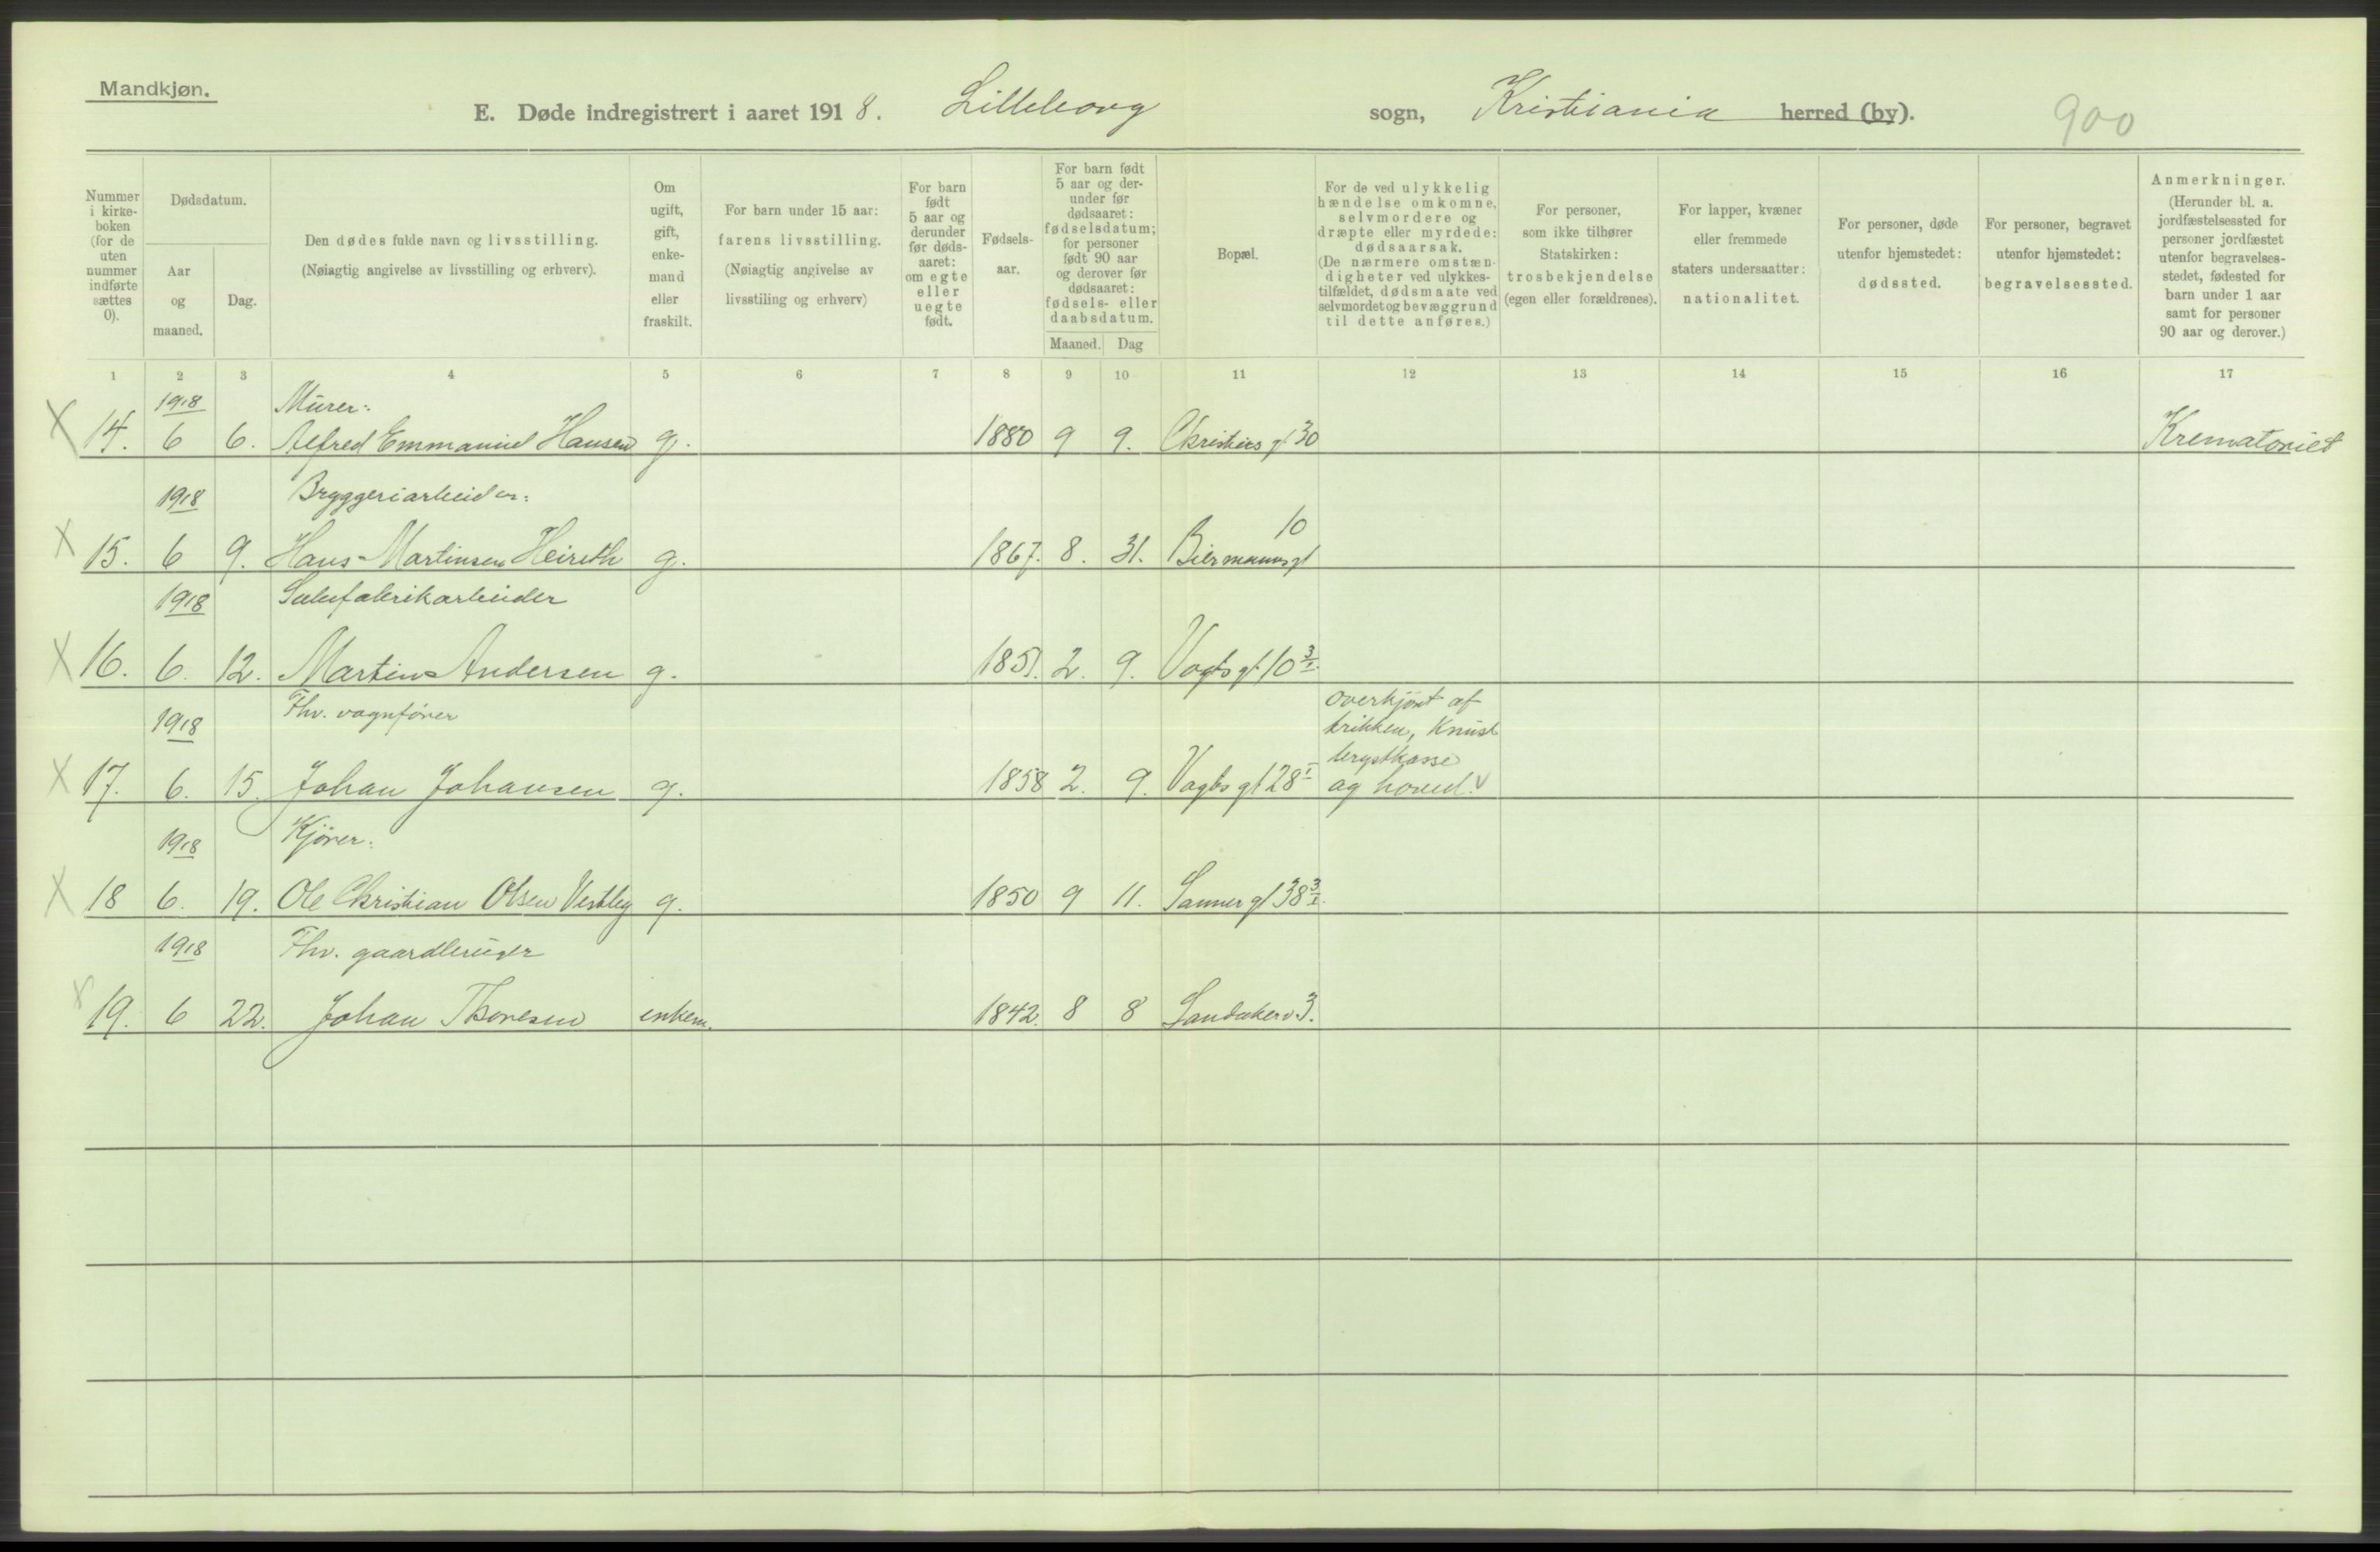 Mandkjøn.
E. Døde indregistrert i aaret 1918. Lilleborg sogn, Kristiania herred (by).
900
Nummer i kirkeboken (for de uten nummer indførte sættes 0).
Dødsdatum.
Aar og maaned.
Dag.
Den dødes fulde navn og livsstilling.
(Nøiagtig angivelse av livsstilling og erhverv).
Om ugift, gift, enkemand eller fraskilt.
For barn under 15 aar:
farens livsstilling.
(Nøiagtig angivelse av livsstiling og erhverv)
For barn født 5 aar og derunder før dødsaaret: om egte eller uegte født.
Fødselsaar.
For barn født 5 aar og derunder før dødsaaret: fødselsdatum; for personer født 90 aar og derover før dødsaaret: fødsels- eller daabsdatum.
Maaned. Dag
Bopæl.
For de ved ulykkelig hændelse omkomne, selvmordere og dræpte eller myrdede: dødsaarsak.
(De nærmere omstændigheter ved ulykkestilfældet, dødsmaate ved selvmordet og bevæggrund til dette anføres.)
For personer, som ikke tilhører Statskirken: trosbekjendelse (egen eller forældrenes).
For lapper, kvæner eller fremmede staters undersaatter: nationalitet.
For personer, døde utenfor hjemstedet: dødssted.
For personer, begravet utenfor hjemstedet: begravelsessted.
Anmerkninger.
(Herunder bl. a. jordfæstelsessted for personer jordfæstet utenfor begravelsesstedet, fødested for barn under 1 aar samt for personer 90 aar og derover.)
1 2 3 4 5 6 7 8 9 10 11 12 13 14 15 16 17
1918 Murer:
X 14. 6 6. Alfred Emmanuel Hansen g. 1880 9 9. Christies gt 30 Krematoriet
1918 Bryggeriarbeider:
10
X 15. 6 9. Hans Martinsen Heireth g. 1867. 8. 31. Biermannsgt
1918 Sæbefabrikarbeider
X 16. 6. 12. Martin Andersen g. 1851. 2. 9. Vogtsgt 10 3/I.
1918 Fhv. vognfører
overkjørt af
trikken, Knust
brystkasse
X 17. 6. 15. Johan Johansen g. 1858 2. 9. Vogts gt 28 I og hoved. v
1918 Kjører:
X 18 6. 19. Ole Christian Olsen Vestby g. 1850 9 11. Sannergt 38 3/I.
1918 Fhv. gaardbruger
X 19. 6 22. Johan Thoresen enkem. 1842. 8 8 Sandakerv. 3.